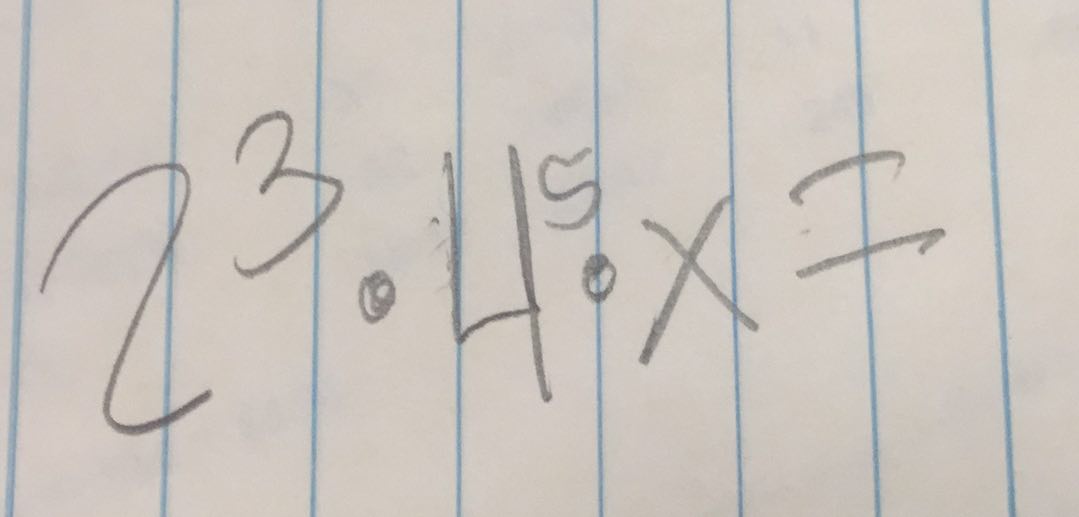 2³ · 4⁵ · x =